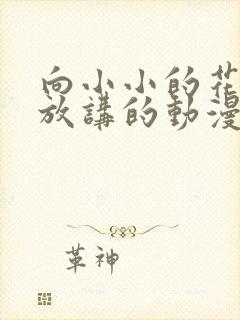 向小小的花
放講的動漫
革神